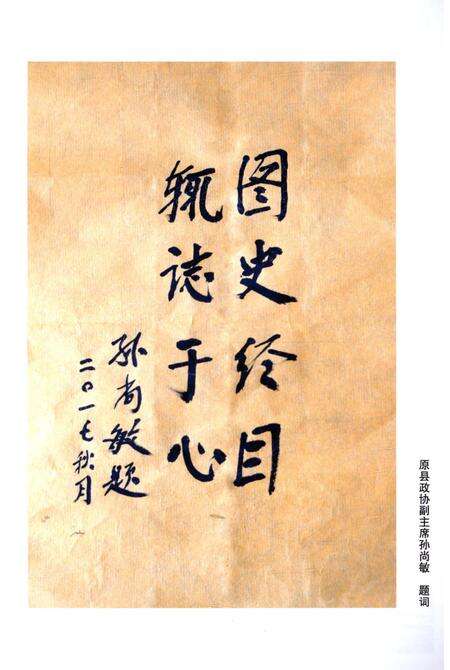 图史经目
辄誌于心
孙尚敏题
二〇一七秋月
原县政协副主席孙尚敏　题词